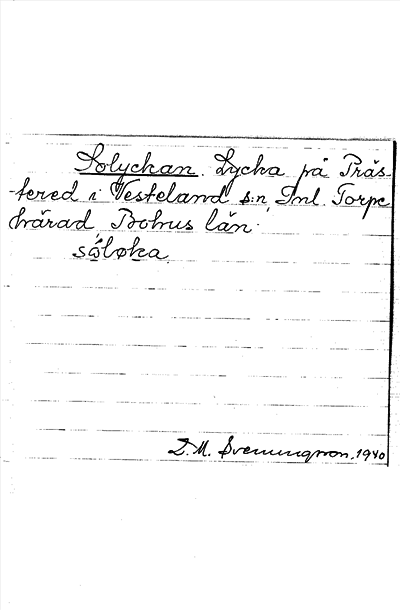 Solyckan. Lycka på Präs-
-tered i Vesteland s:n, Inl. Torpe
härad Bohus län.
sóløka
S. M. Svenungsson, 1940